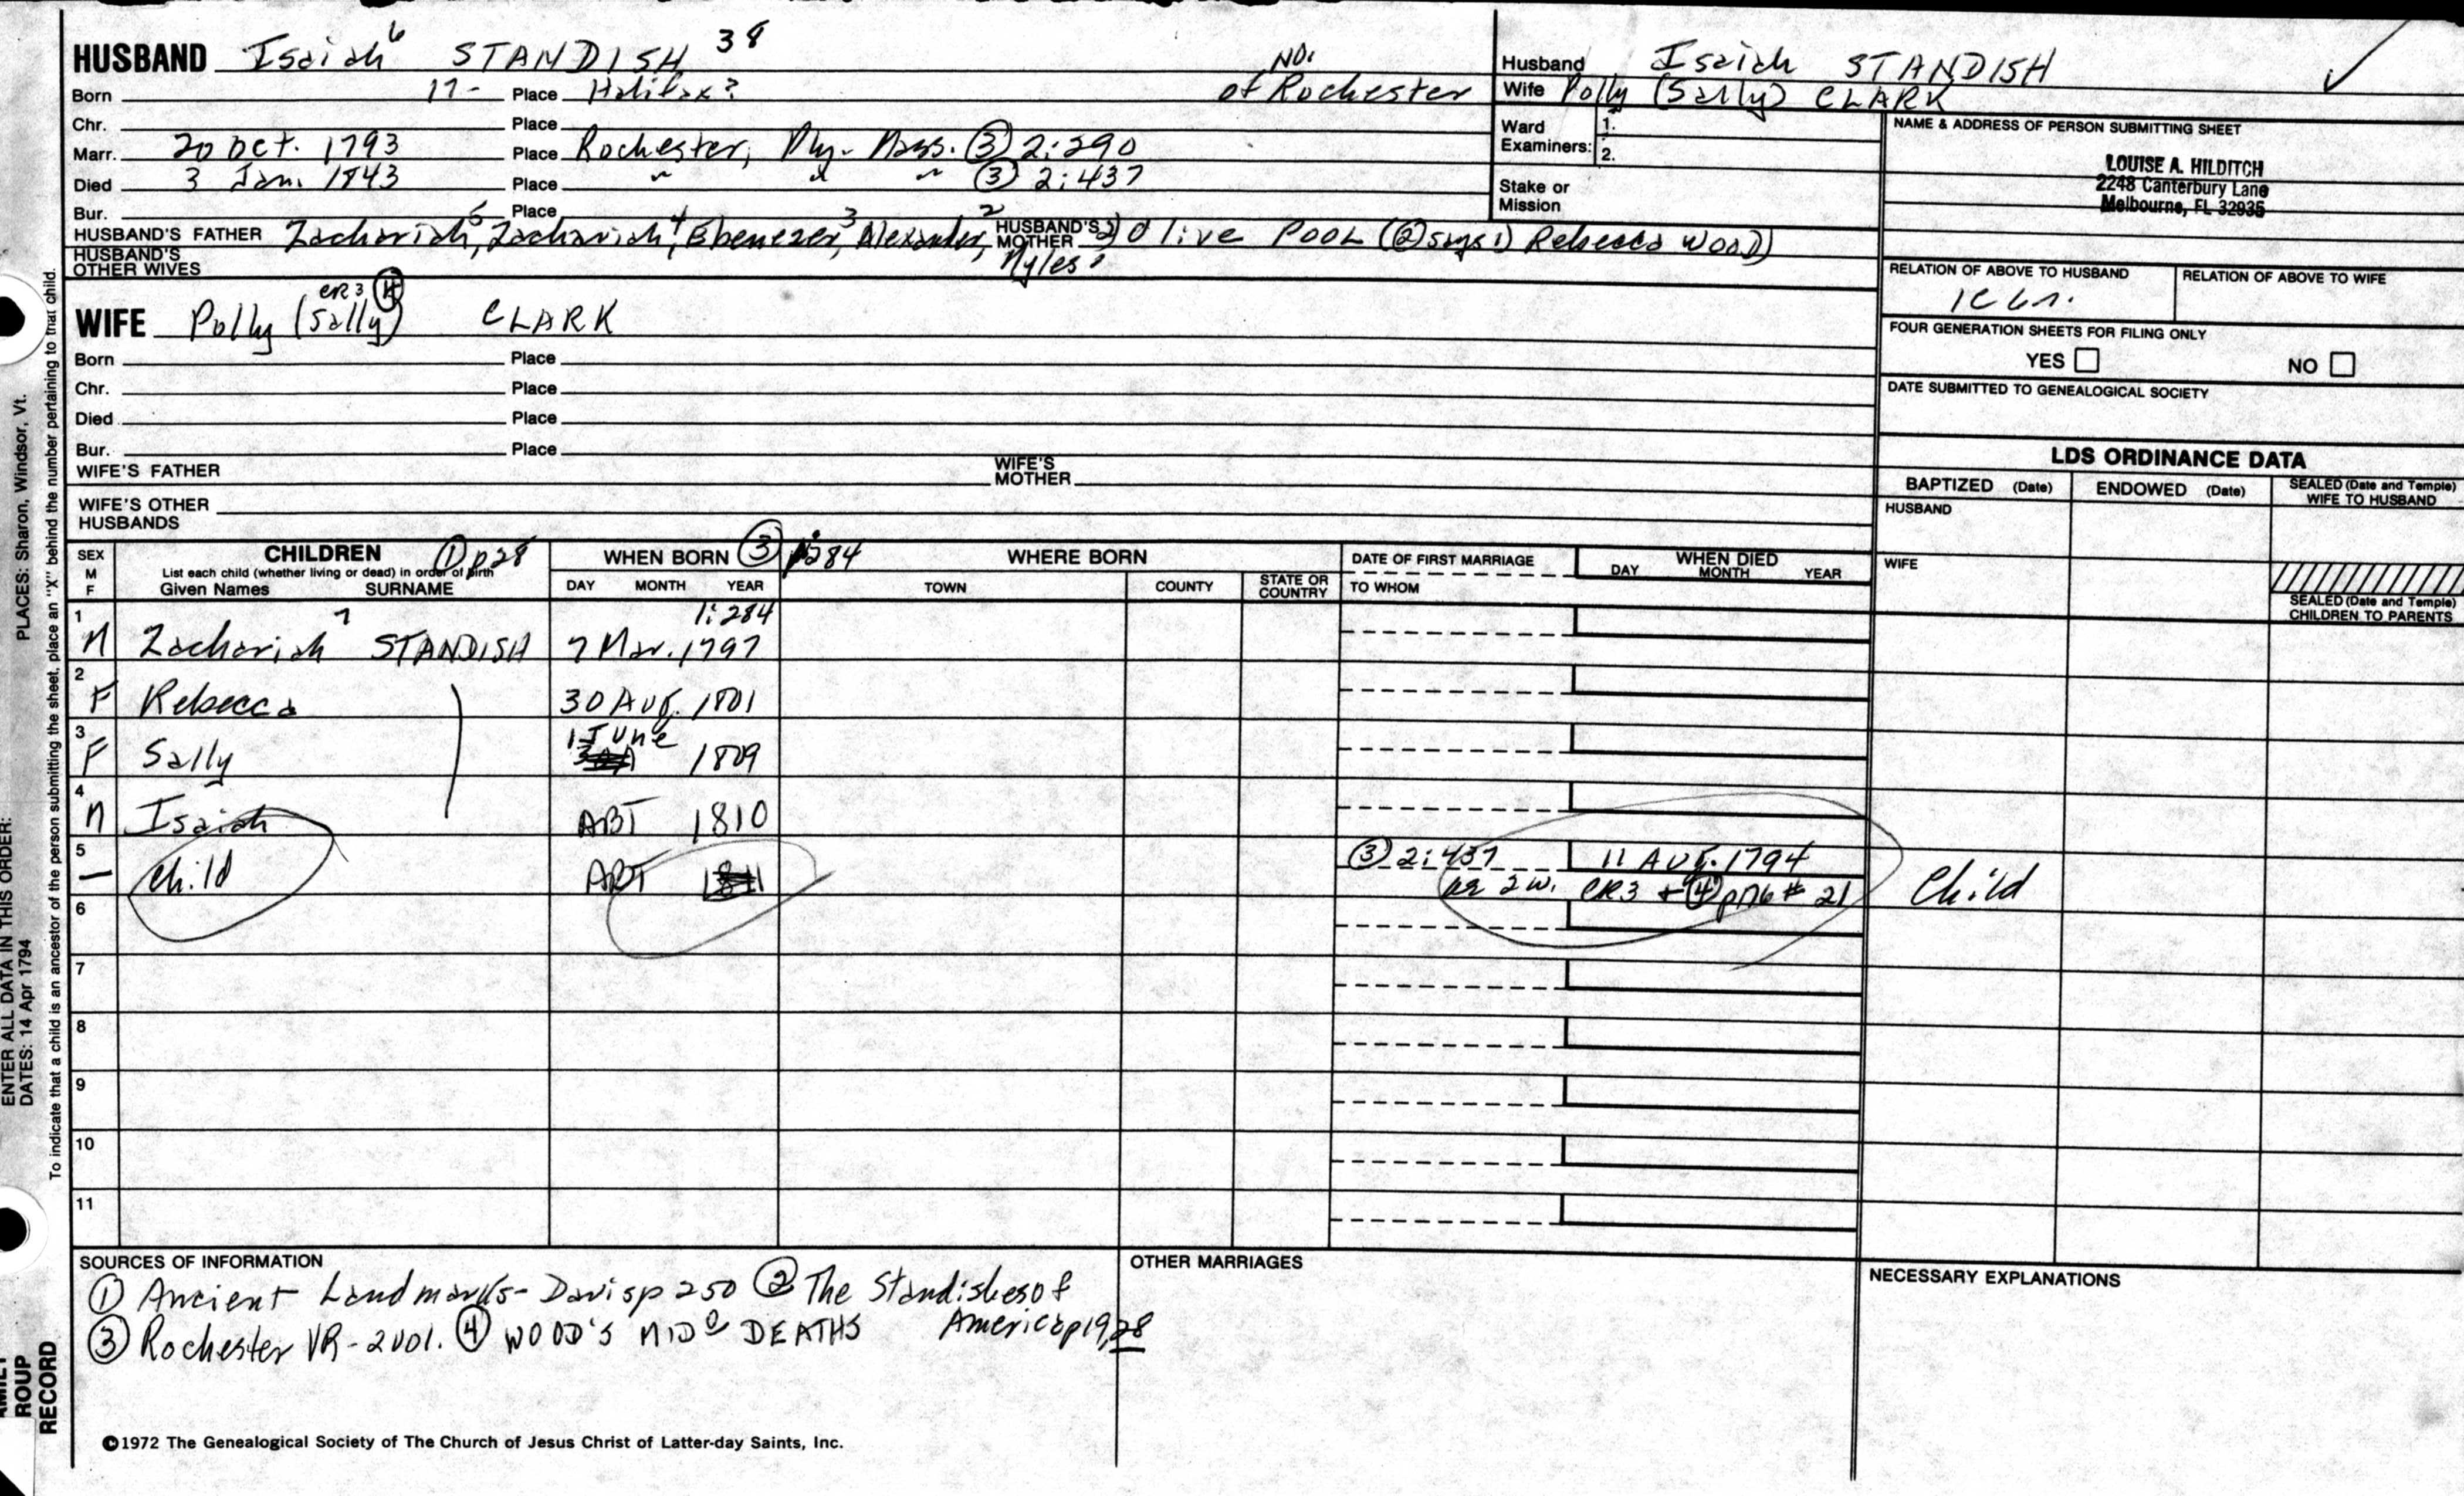 HUSBAND Isaiah 6 STANDISH 38
Born 17- Place Halifax? NO. of Rochester
Chr. Place
Marr. 20 Oct. 1793 Place Rochester, Ply. Mass. (3) 2:290
Died 3 Jan. 1843 Place " " " (3) 2:437
Bur. Place
HUSBAND'S FATHER Zachariah 5, Zachariah 4, Ebenezer 3, Alexander 2, Myles 1 HUSBAND'S MOTHER 2) Olive POOL ((2) says 1) Rebecca WOOD)
HUSBAND'S OTHER WIVES
Husband Isaiah STANDISH
Wife Polly (Sally) CLARK
Ward Examiners: 1.
2.
Stake or Mission
NAME & ADDRESS OF PERSON SUBMITTING SHEET
LOUISE A. HILDITCH
2248 Canterbury Lane
Melbourne, FL 32935
RELATION OF ABOVE TO HUSBAND RELATION OF ABOVE TO WIFE
FOUR GENERATION SHEETS FOR FILING ONLY
YES NO
DATE SUBMITTED TO GENEALOGICAL SOCIETY
CR3 (4)
WIFE Polly (Sally) CLARK
Born Place
Chr. Place
Died Place
Bur. Place
WIFE'S FATHER WIFE'S MOTHER
WIFE'S OTHER HUSBANDS
LDS ORDINANCE DATA
BAPTIZED (Date) ENDOWED (Date) SEALED (Date and Temple) WIFE TO HUSBAND
HUSBAND
WIFE
SEALED (Date and Temple) CHILDREN TO PARENTS
SEX M F CHILDREN (1) p28 WHEN BORN (3) 284 WHERE BORN DATE OF FIRST MARRIAGE WHEN DIED
List each child (whether living or dead) in order of birth
Given Names SURNAME DAY MONTH YEAR TOWN COUNTY STATE OR COUNTRY TO WHOM DAY MONTH YEAR
1 M Zachariah 7 STANDISH 7 Mar. 1797 1:284
2 F Rebecca 30 Aug. 1801
3 F Sally 1 June 1809
4 M Isaiah ABT 1810
5 — Child ABT (3) 2:437 11 Aug. 1794 Child
ae 2w. CR3 + (4) p176 # 21
6
7
8
9
10
11
SOURCES OF INFORMATION
(1) Ancient Landmarks- Davis p 250 (2) The Standishes of America p 19, 28
(3) Rochester VR - 2 vol. (4) WOOD'S MIDo DEATHS
OTHER MARRIAGES
NECESSARY EXPLANATIONS
©1972 The Genealogical Society of The Church of Jesus Christ of Latter-day Saints, Inc.
ENTER ALL DATA IN THIS ORDER:
DATES: 14 Apr 1794 PLACES: Sharon, Windsor, Vt.
To indicate that a child is an ancestor of the person submitting the sheet, place an "X" behind the number pertaining to that child.
ROUP
RECORD